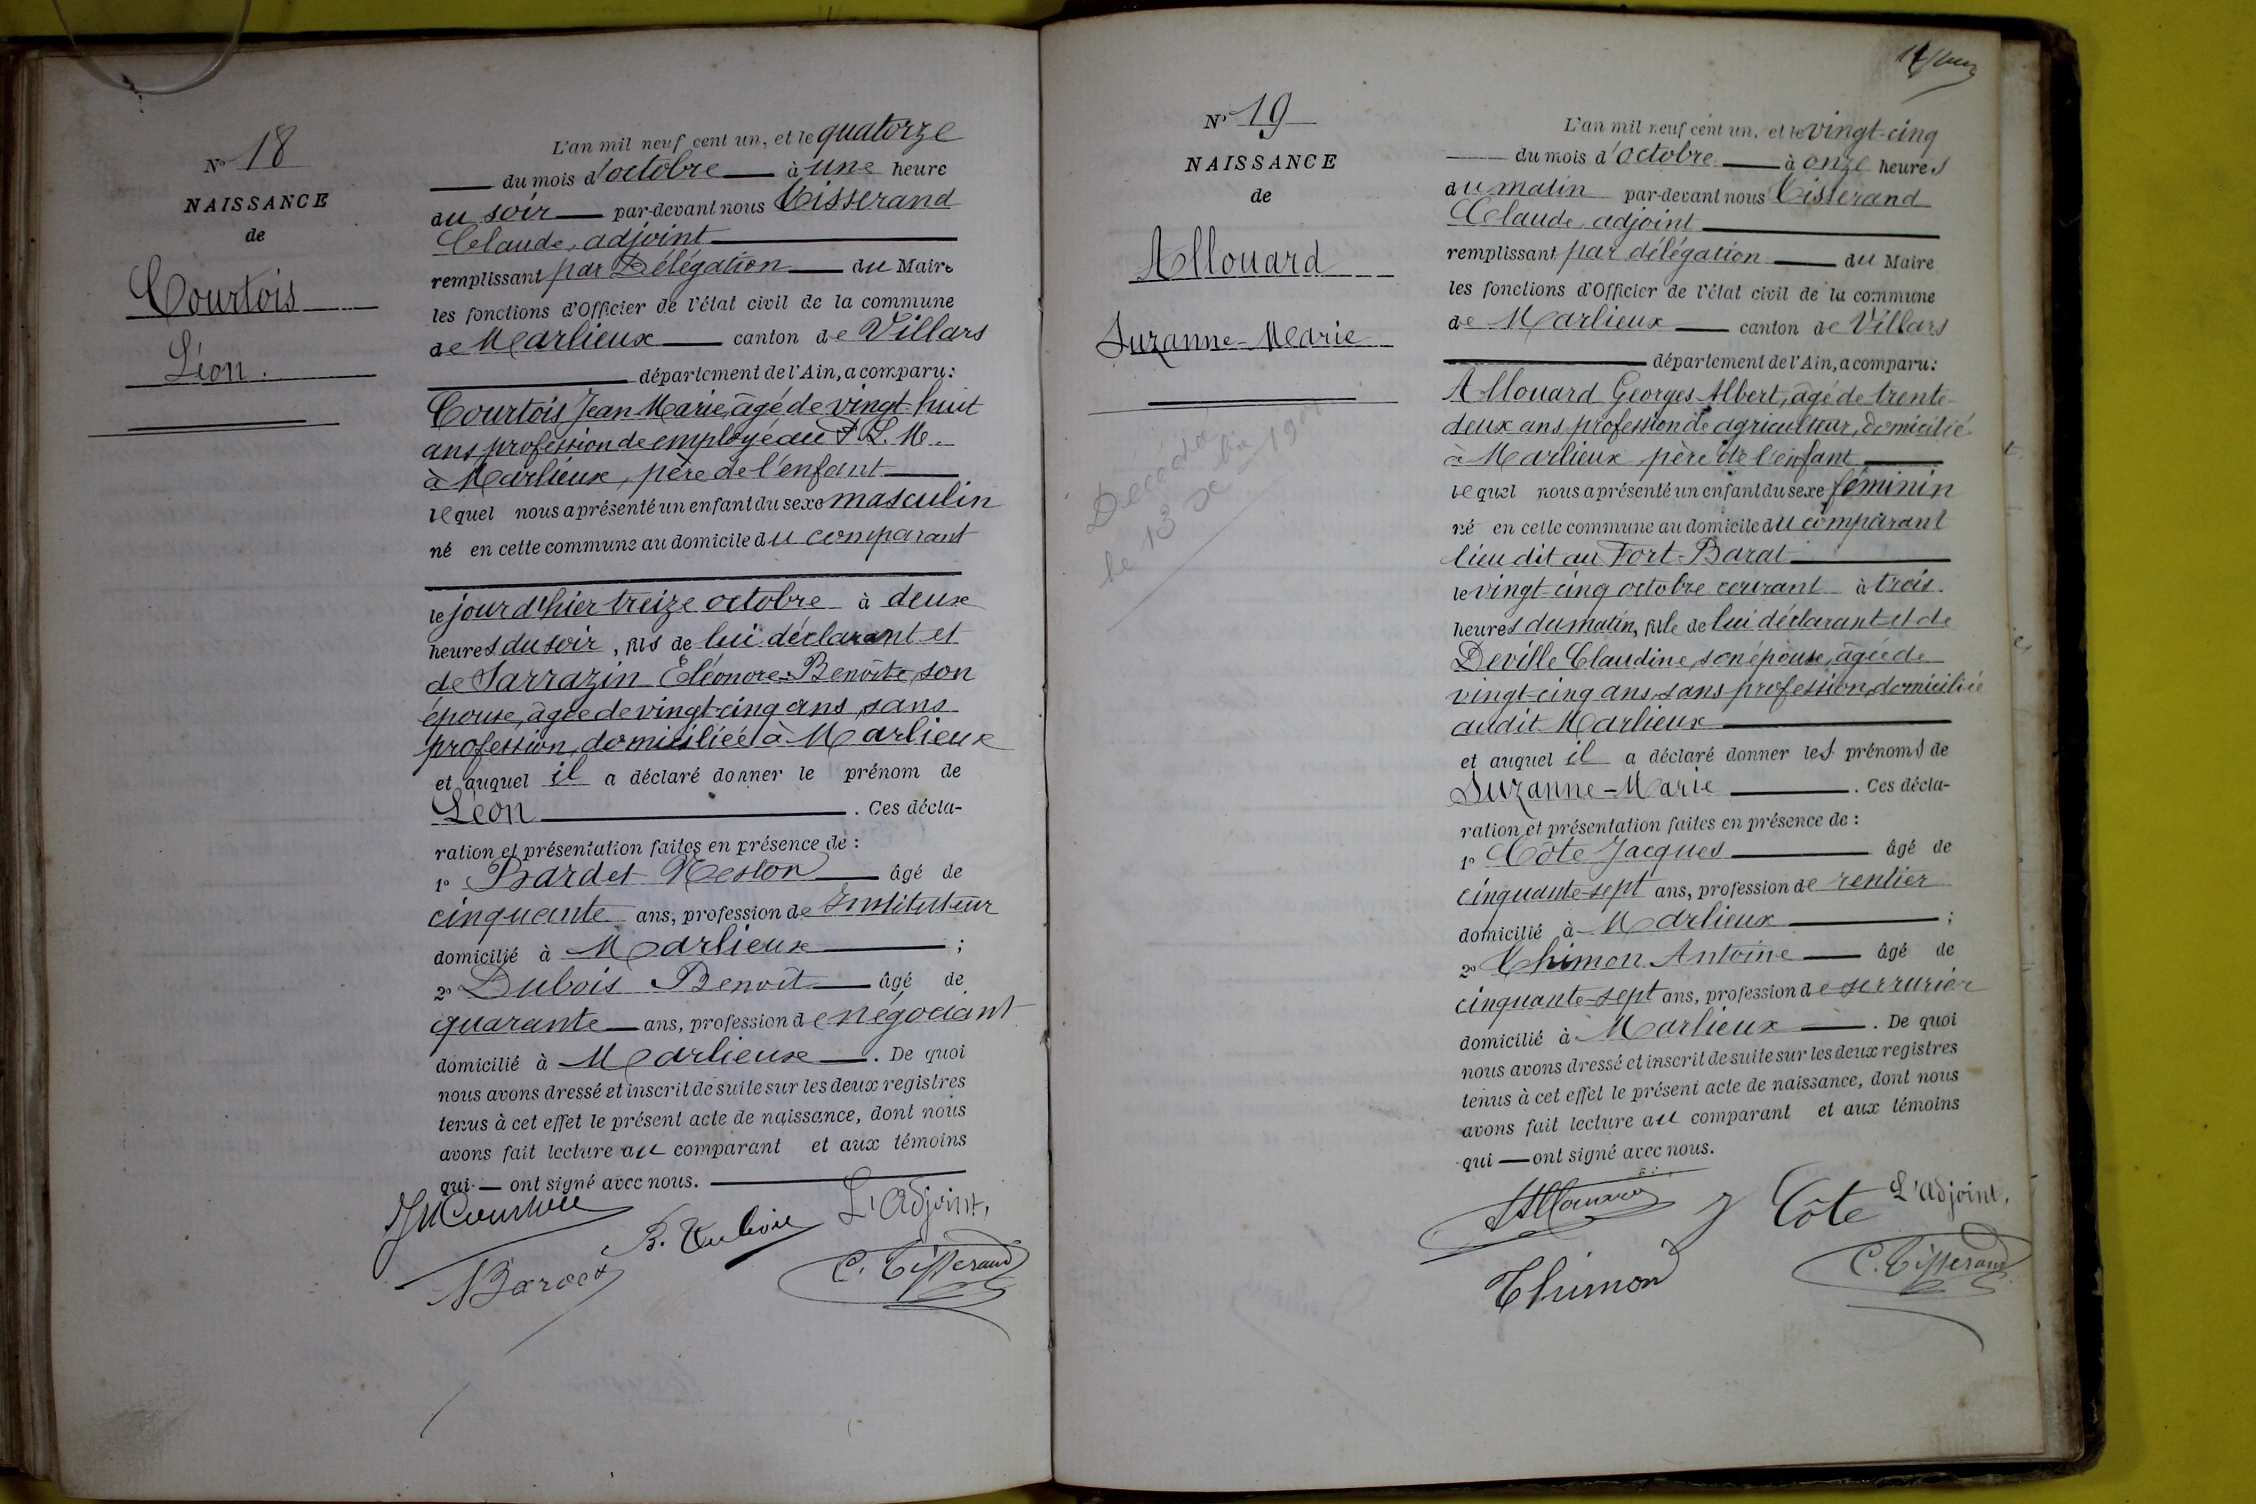 N° 18
NAISSANCE
de
Courtois
Léon.
L'an mil neuf cent un, et le quatorze
du mois d'octobre à une heure
du soir par-devant nous Tisserand
Claude, adjoint
remplissant par Délégation du Maire
les fonctions d'Officier de l'état civil de la commune
de Marlieux canton de Villars
département de l'Ain, a comparu:
Courtois Jean Marie, âgé de vingt-huit
ans, profession de employé au P.L.M.
à Marlieux, père de l'enfant
lequel nous a présenté un enfant du sexe masculin
né en cette commune au domicile du comparant
le jour d'hier treize octobre à deux
heures du soir, fils de lui déclarant et
de Sarrazin Eléonore-Benoîte, son
épouse, âgée de vingt-cinq ans, sans
profession, domiciliée à Marlieux
et auquel il a déclaré donner le prénom de
Léon. Ces décla-
ration et présentation faites en présence de :
1° Bardet Nestor âgé de
cinquante ans, profession de Instituteur
domicilié à Marlieux ;
2° Dubois Benoît âgé de
quarante ans, profession de négociant
domicilié à Marlieux. De quoi
nous avons dressé et inscrit de suite sur les deux registres
tenus à cet effet le présent acte de naissance, dont nous
avons fait lecture au comparant et aux témoins
qui — ont signé avec nous.
JM Courtois
B. Dubois
L'Adjoint,
N Bardet
C. Tisserand
N° 19
NAISSANCE
de
Allouard
Suzanne-Marie
Décédée
le 13 Xbre 190
L'an mil neuf cent un, et le vingt-cinq
du mois d'octobre à onze heures
du matin par-devant nous Tisserand
Claude, adjoint
remplissant par délégation du Maire
les fonctions d'Officier de l'état civil de la commune
de Marlieux canton de Villars
département de l'Ain, a comparu:
Allouard Georges Albert, âgé de trente-
deux ans, profession de agriculteur, domicilié
à Marlieux père de l'enfant
lequel nous a présenté un enfant du sexe féminin
né en cette commune au domicile du comparant
lieu dit au Fort-Barat
le vingt-cinq octobre courant à trois
heures du matin, fille de lui déclarant et de
Deville Claudine, son épouse, âgée de
vingt-cinq ans, sans profession, domiciliée
audit Marlieux
et auquel il a déclaré donner les prénoms de
Suzanne-Marie. Ces décla-
ration et présentation faites en présence de :
1° Côte Jacques âgé de
cinquante-sept ans, profession de rentier
domicilié à Marlieux ;
2° Thimon Antoine âgé de
cinquante-sept ans, profession de serrurier
domicilié à Marlieux. De quoi
nous avons dressé et inscrit de suite sur les deux registres
tenus à cet effet le présent acte de naissance, dont nous
avons fait lecture au comparant et aux témoins
qui — ont signé avec nous.
Allouard
J Côte
L'Adjoint,
Thimon
C. Tisserand